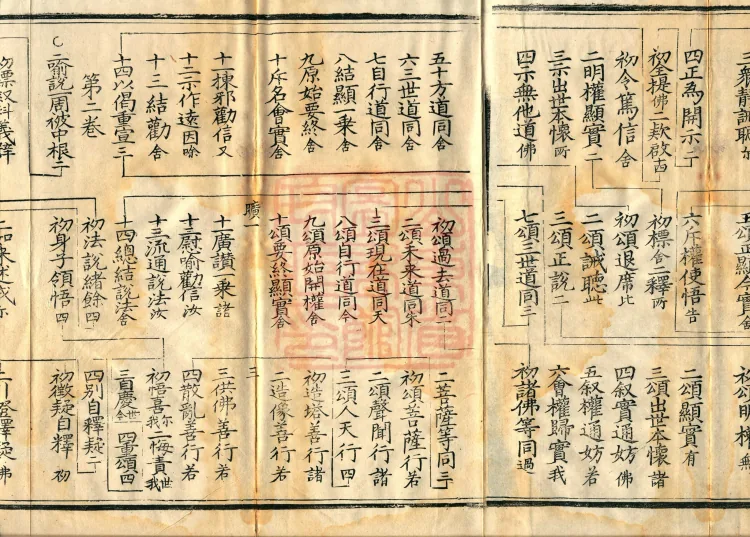 四正為開示二
初令篤信舍
二明權顯實二
三示出世本懷所
四示無他道佛
六斥權使悟告
初標舍二釋所
初頌退席比
二頌誡聽此
三頌正說二
七頌三世道同三
初頌明權無
二頌顯實有
三頌出世本懷諸
四叙實通妨佛
五叙權通妨若
六會權歸實我
初諸佛等同過
五十方道同舍
六三世道同舍
七自行道同舍
八結顯一乗舍
九原始要終舍
十斥名會實舍
十一揀邪勸信又
十二示作遠因
十三結勸舍
十四以偈重宣二
第二卷
二喻說周被中根二
初頌過去道同二
二頌未來道同未
三頌現在道同天
八頌自行道同今
九頌原始開權舍
十頌要終顯實舍
十一廣讚一乗諸
十二慰喻勸信汝
十三流通說法汝
十四總結說法舍
初法說緒餘四
初身子領悟四
二菩薩等同三
初頌菩薩行若
二頌聲聞行諸
三頌人天行四
初造塔善行諸
二造像善行若
三
三供佛善行若
四散亂善行若
初悟喜尔我二悔責世我
三自慶四重頌四
四別自釋疑二
初徵疑自釋初